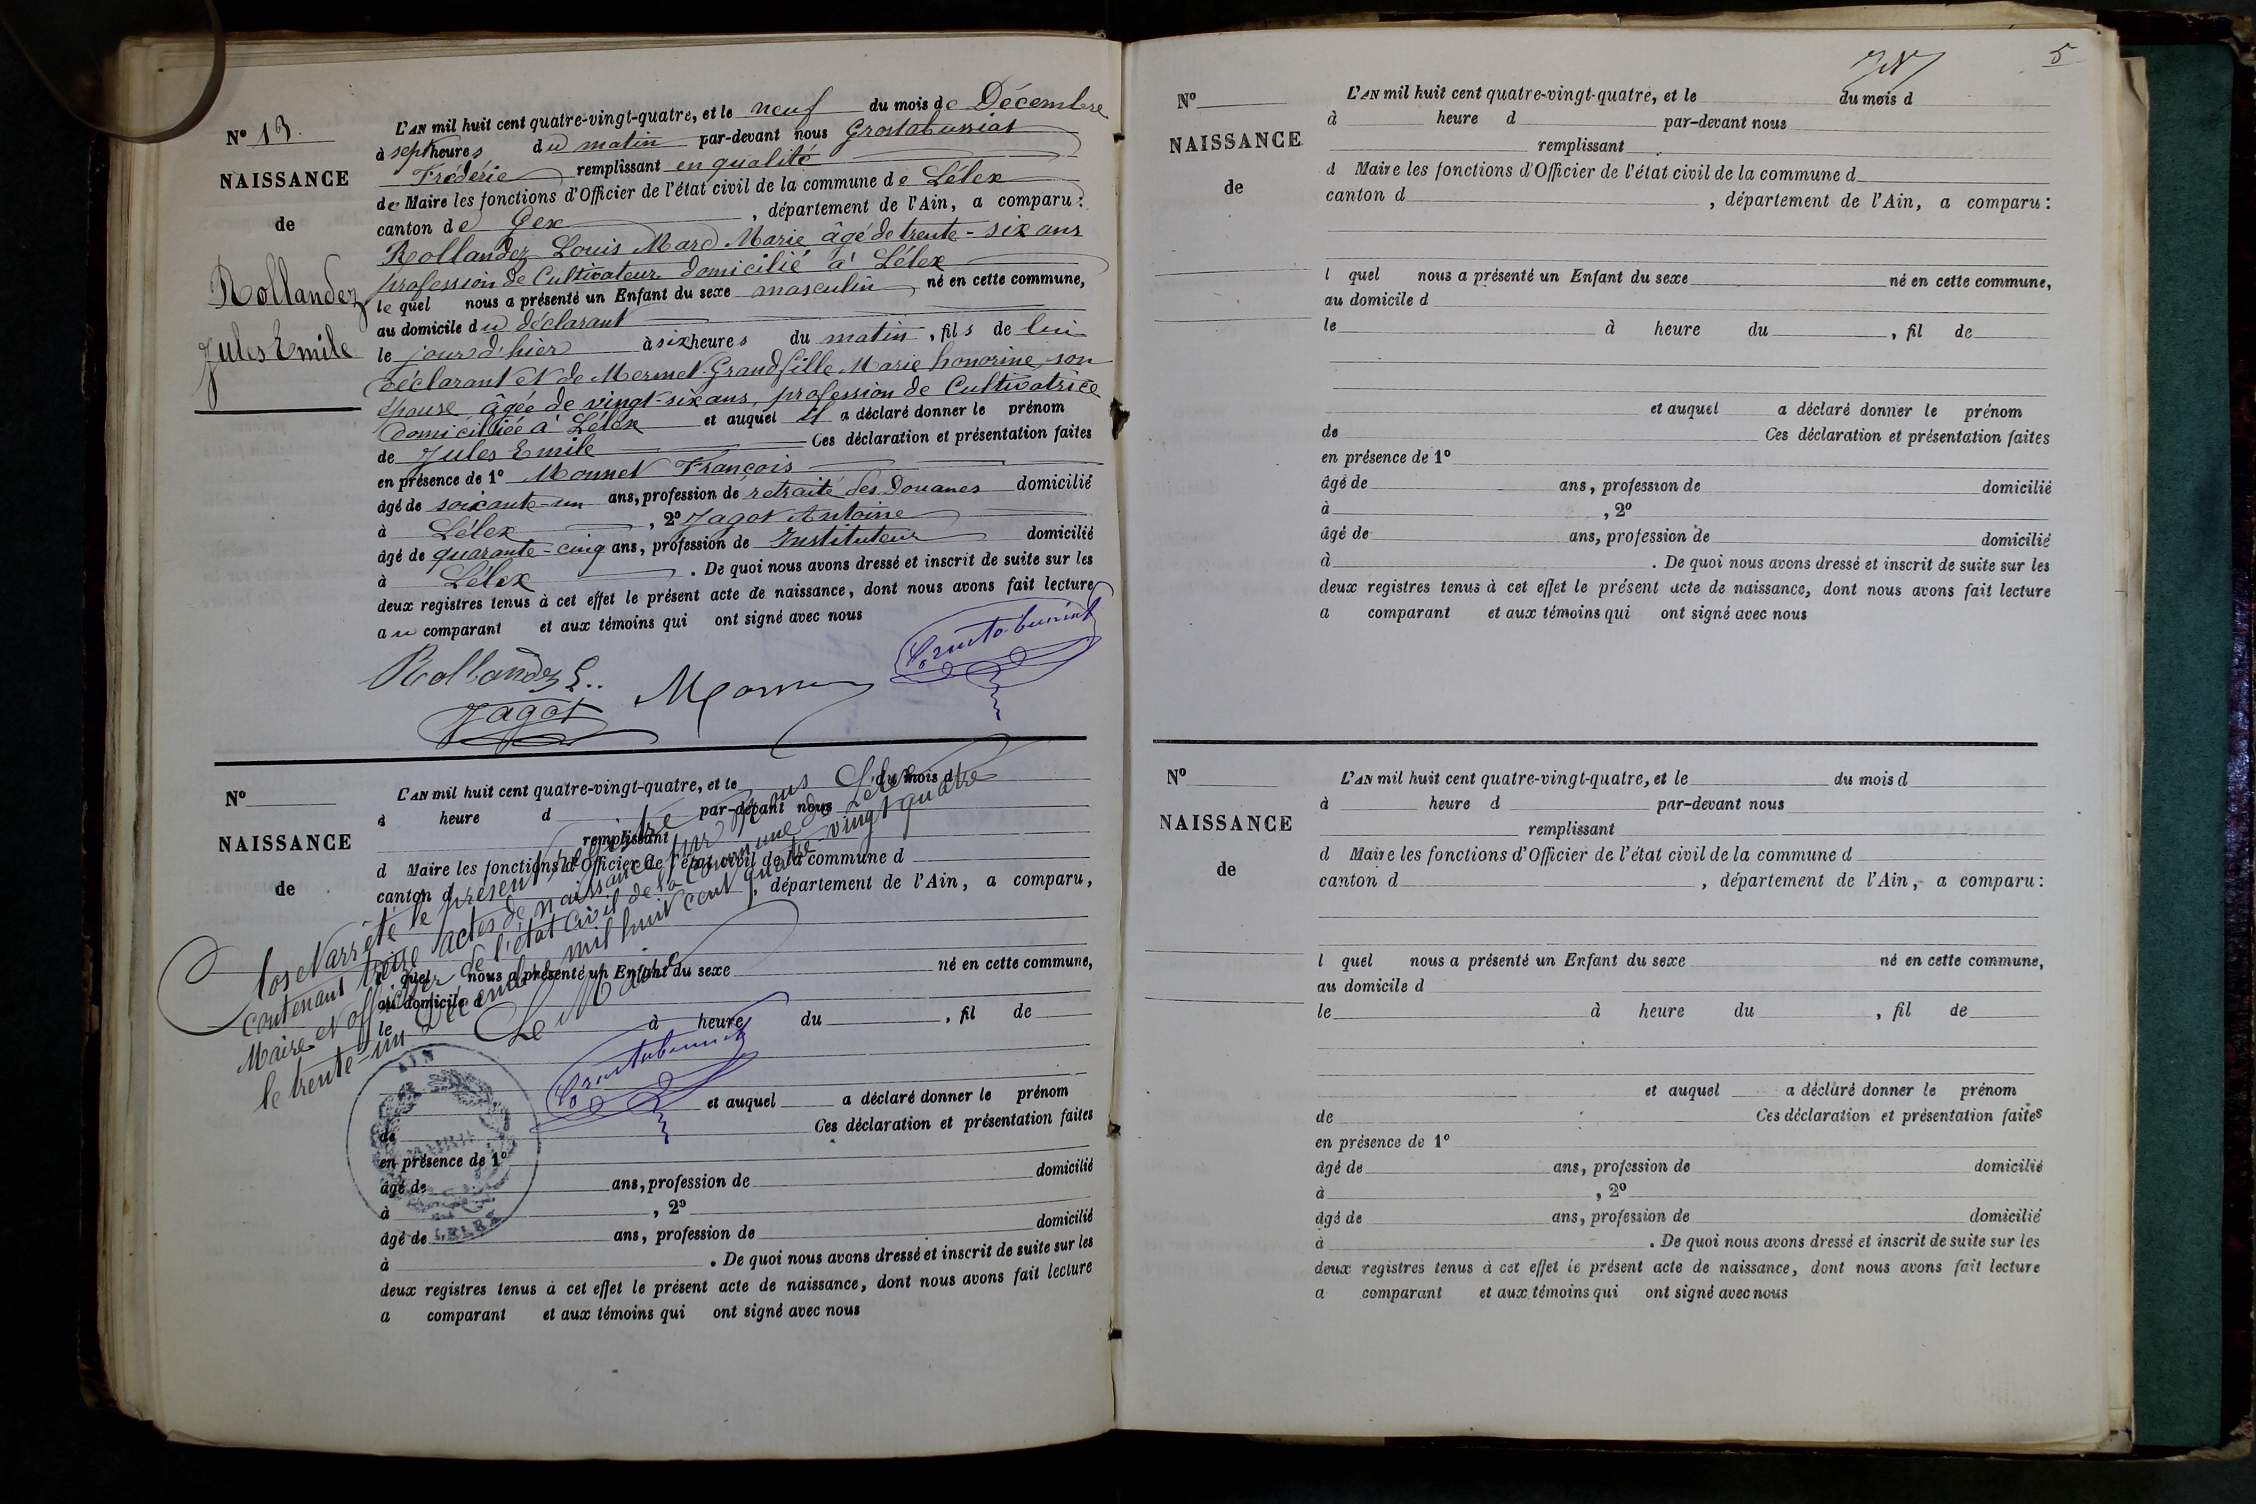 N° 13.
NAISSANCE
de
Rollandez
Jules Emile
L'AN mil huit cent quatre-vingt-quatre, et le neuf du mois de Décembre
à sept heures du matin par-devant nous Grostabussiat
Frédéric remplissant en qualité
de Maire les fonctions d'Officier de l'état civil de la commune de Lélex
canton de Gex, département de l'Ain, a comparu:
Rollandez Louis Marc Marie âgé de trente-six ans
profession de Cultivateur domicilié à Lélex
le quel nous a présenté un Enfant du sexe masculin né en cette commune,
au domicile du déclarant
le jour d'hier à six heures du matin, fils de lui
déclarant et de Mermet-Grandfille Marie honorine son
épouse âgée de vingt-six ans, profession de Cultivatrice
domiciliée à Lélex et auquel il a déclaré donner le prénom
de Jules Emile Ces déclaration et présentation faites
en présence de 1° Monnet François
âgé de soixante-un ans, profession de retraité des Douanes domicilié
à Lélex, 2° Jagot Antoine
âgé de quarante-cinq ans, profession de Instituteur domicilié
à Lélex. De quoi nous avons dressé et inscrit de suite sur les
deux registres tenus à cet effet le présent acte de naissance, dont nous avons fait lecture
au comparant et aux témoins qui ont signé avec nous
Rollandez L.
Jagot
Grostabussiat
N°
NAISSANCE
de
L'AN mil huit cent quatre-vingt-quatre, et le du mois d
à heure d par-devant nous
remplissant
d Maire les fonctions d'Officier de l'état civil de la commune d
canton d , département de l'Ain, a comparu,
l quel nous a présenté un Enfant du sexe né en cette commune,
au domicile d
le à heure du , fil de
et auquel a déclaré donner le prénom
de Ces déclaration et présentation faites
en présence de 1°
âgé de ans, profession de domicilié
à , 2°
âgé de ans, profession de domicilié
à . De quoi nous avons dressé et inscrit de suite sur les
deux registres tenus à cet effet le présent acte de naissance, dont nous avons fait lecture
a comparant et aux témoins qui ont signé avec nous
Clos et arrêté le présent registre
contenant treize actes de naissance par Nous
Maire et officier de l'état civil de la Commune de Lélex
le trente-un Décembre mil huit cent quatre-vingt quatre
Le Maire
Grostabussiat
AIN
MAIRIE
LELEX
5
N°
NAISSANCE
de
L'AN mil huit cent quatre-vingt-quatre, et le du mois d
à heure d par-devant nous
remplissant
d Maire les fonctions d'Officier de l'état civil de la commune d
canton d , département de l'Ain, a comparu:
l quel nous a présenté un Enfant du sexe né en cette commune,
au domicile d
le à heure du , fil de
et auquel a déclaré donner le prénom
de Ces déclaration et présentation faites
en présence de 1°
âgé de ans, profession de domicilié
à , 2°
âgé de ans, profession de domicilié
à . De quoi nous avons dressé et inscrit de suite sur les
deux registres tenus à cet effet le présent acte de naissance, dont nous avons fait lecture
a comparant et aux témoins qui ont signé avec nous
N°
NAISSANCE
de
L'AN mil huit cent quatre-vingt-quatre, et le du mois d
à heure d par-devant nous
remplissant
d Maire les fonctions d'Officier de l'état civil de la commune d
canton d , département de l'Ain, a comparu:
l quel nous a présenté un Enfant du sexe né en cette commune,
au domicile d
le à heure du , fil de
et auquel a déclaré donner le prénom
de Ces déclaration et présentation faites
en présence de 1°
âgé de ans, profession de domicilié
à , 2°
âgé de ans, profession de domicilié
à . De quoi nous avons dressé et inscrit de suite sur les
deux registres tenus à cet effet le présent acte de naissance, dont nous avons fait lecture
a comparant et aux témoins qui ont signé avec nous